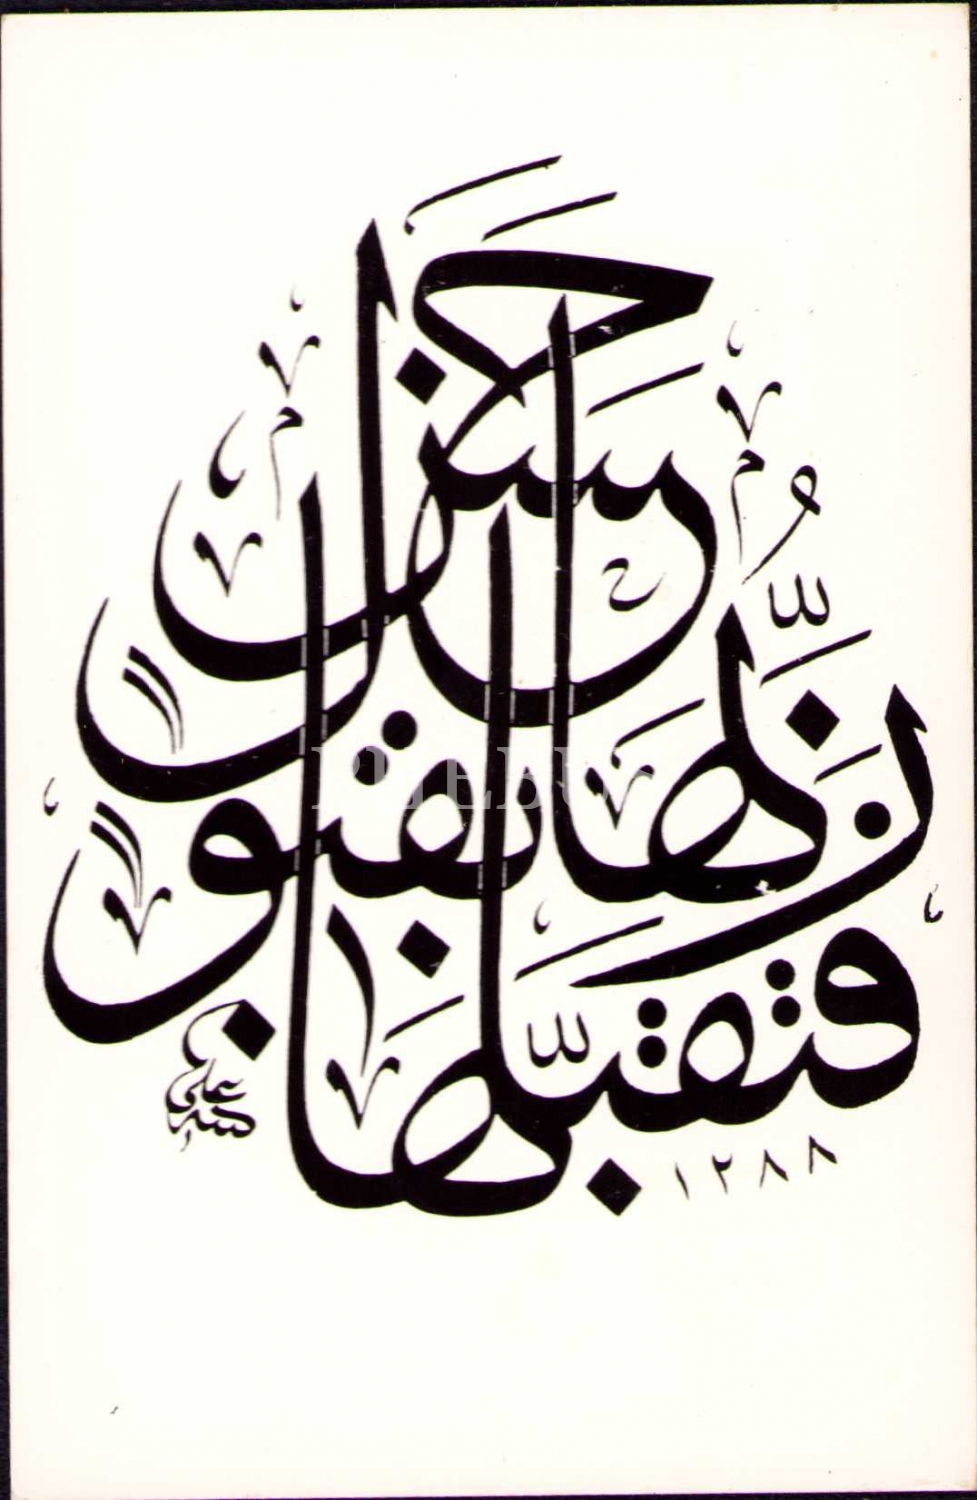 فَتَقَبَّلَهَا رَبُّهَا بِقَبُولٍ حَسَنٍ
علي
١٢٨٨